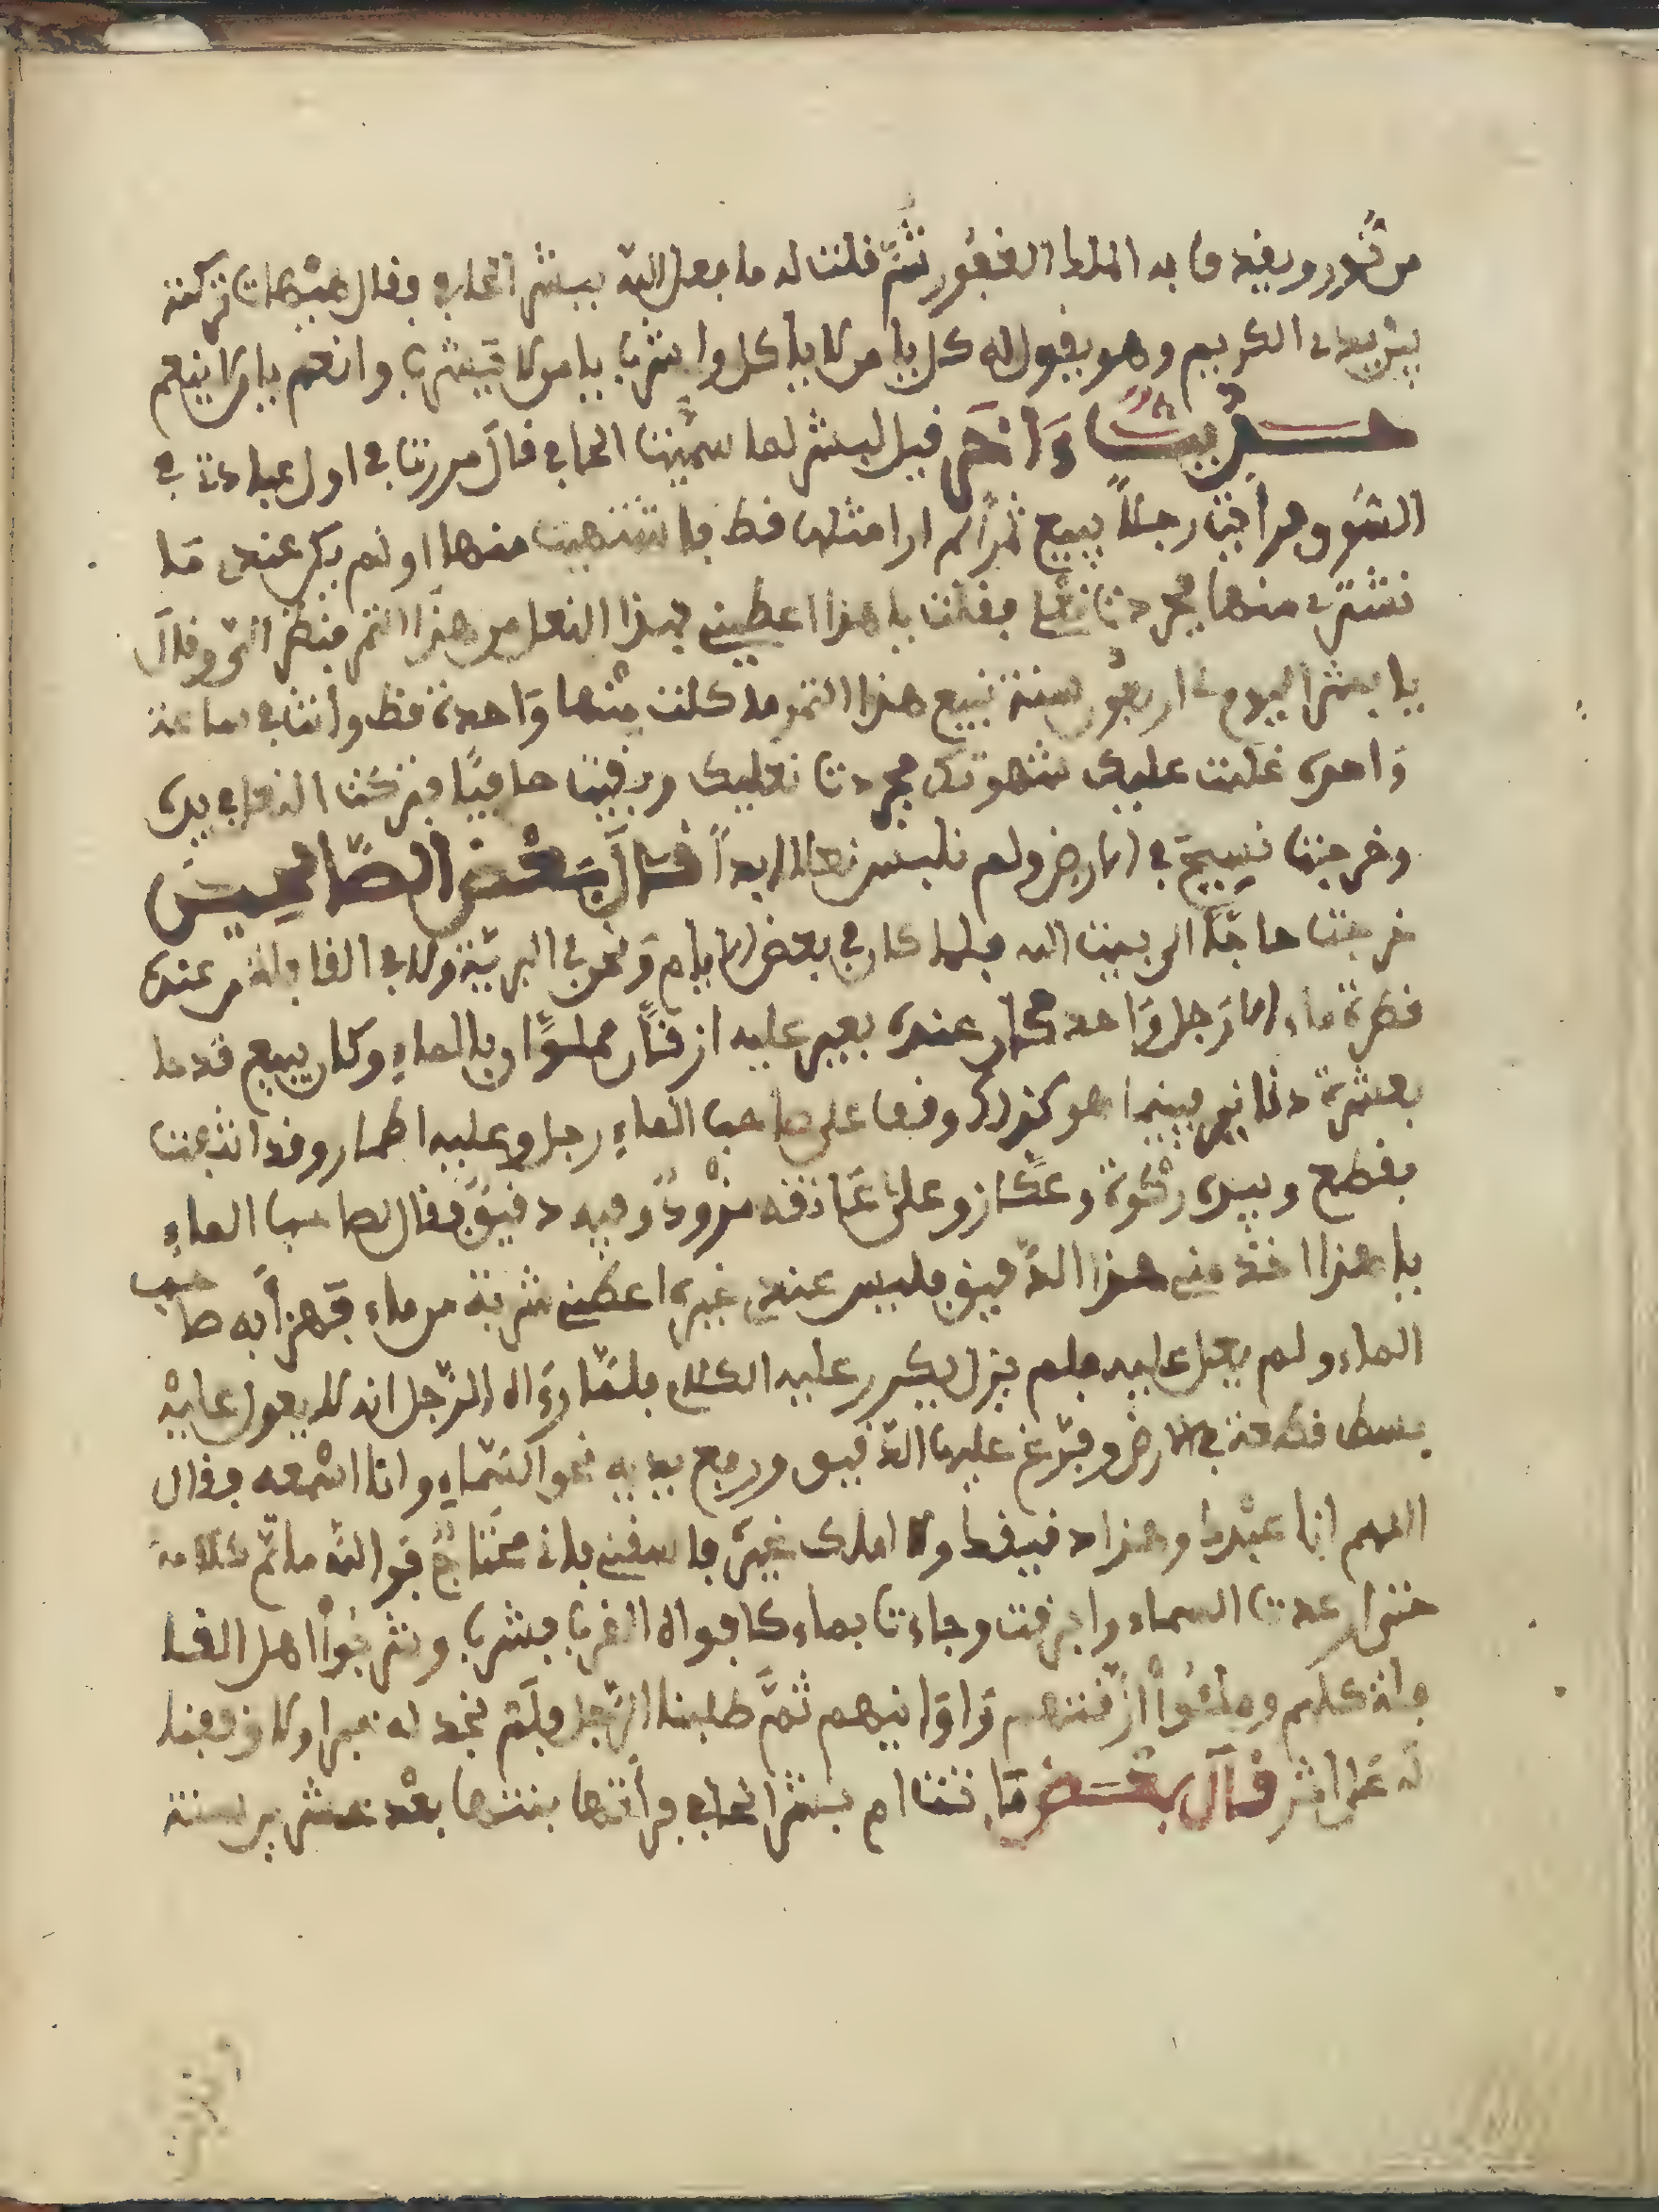 من نور ويفيد ما به الملك الغفور ثم قلت له ما فعل الله ببشر الحافي فقال هيهات تركته
بين يدى الكريم وهو يقول له كل يا من لا ياكل واشرب يا من لا يشرب وانعم يا من لا ينعم
حديث واخر قيل لبشر لما سميت الحافي قال مررت في اول عبادت في
السوق فرأيت رجلاً يبيع تمراً لم ارا مثلها قط فاشتهيت منها اولم يكن عندى ما
نشترى منها فجردت نعلى فقلت يا هذا اعطينى بهذا النعل من هذا التمر فنظر الىّ وقال
يا بشر اليوم لى اربعون سنة نبيع هذا التمر ما كلت منها واحدة قط وانت في ساعة
واحدة غلبت عليك شهوتك فجردت نعليك وبقيت حافيًا فتركت النعل في يده
وخرجت نسيح في الارض ولم نلبس نعلا ابداً قال بعض الصالحين
خرجت حاجًا الى بيت الله فلما كان في بعض الايام ونحن في البرية ولا في القافلة من عنده
قطرة ماء الا رجل واحد كان عنده بعير عليه ازقتان مملوءان بالماء وكان يبيع قدحا
بعشرة دنانير فبينما هو كذلك وقف على صاحب الماء رجل وعليه اطمار وقد اتبعت
بقطع وبيده ركوة وعكاز وعلى عاتقه مزود وفيه دقيق فقال لصاحب الماء
يا هذا اخذ منى هذا الدقيق فليس عندى غيره اعطنى شربة من ماء فهزأ به صاحب
الماء ولم يعل عليه فلم يزل يكرر عليه الكلام فلما رواه الرجل انه لا يعول عليه
بسط قطعة في الارض وفرّغ عليها الدقيق ورفع يديه نحو السماء وانا اسمعه فقال
اللهم انا عبدك وهذا دقيقك ولا املك غيره فاسقنى فانى محتاج فوالله ما تم كلامه
حتى ارعدت السماء وابرقت وجاءت بماء كافواه القرب فشرب وشربوا اهل القا
فلة كلهم وملئوا ازقتهم واوانيهم ثم طلبنا الرجل فلم نجد له خبرا ولا وقعنا
له على اثر قال بعض ماتت ام بشر الحافي فرأتها بنتها بعد عشرين سنة